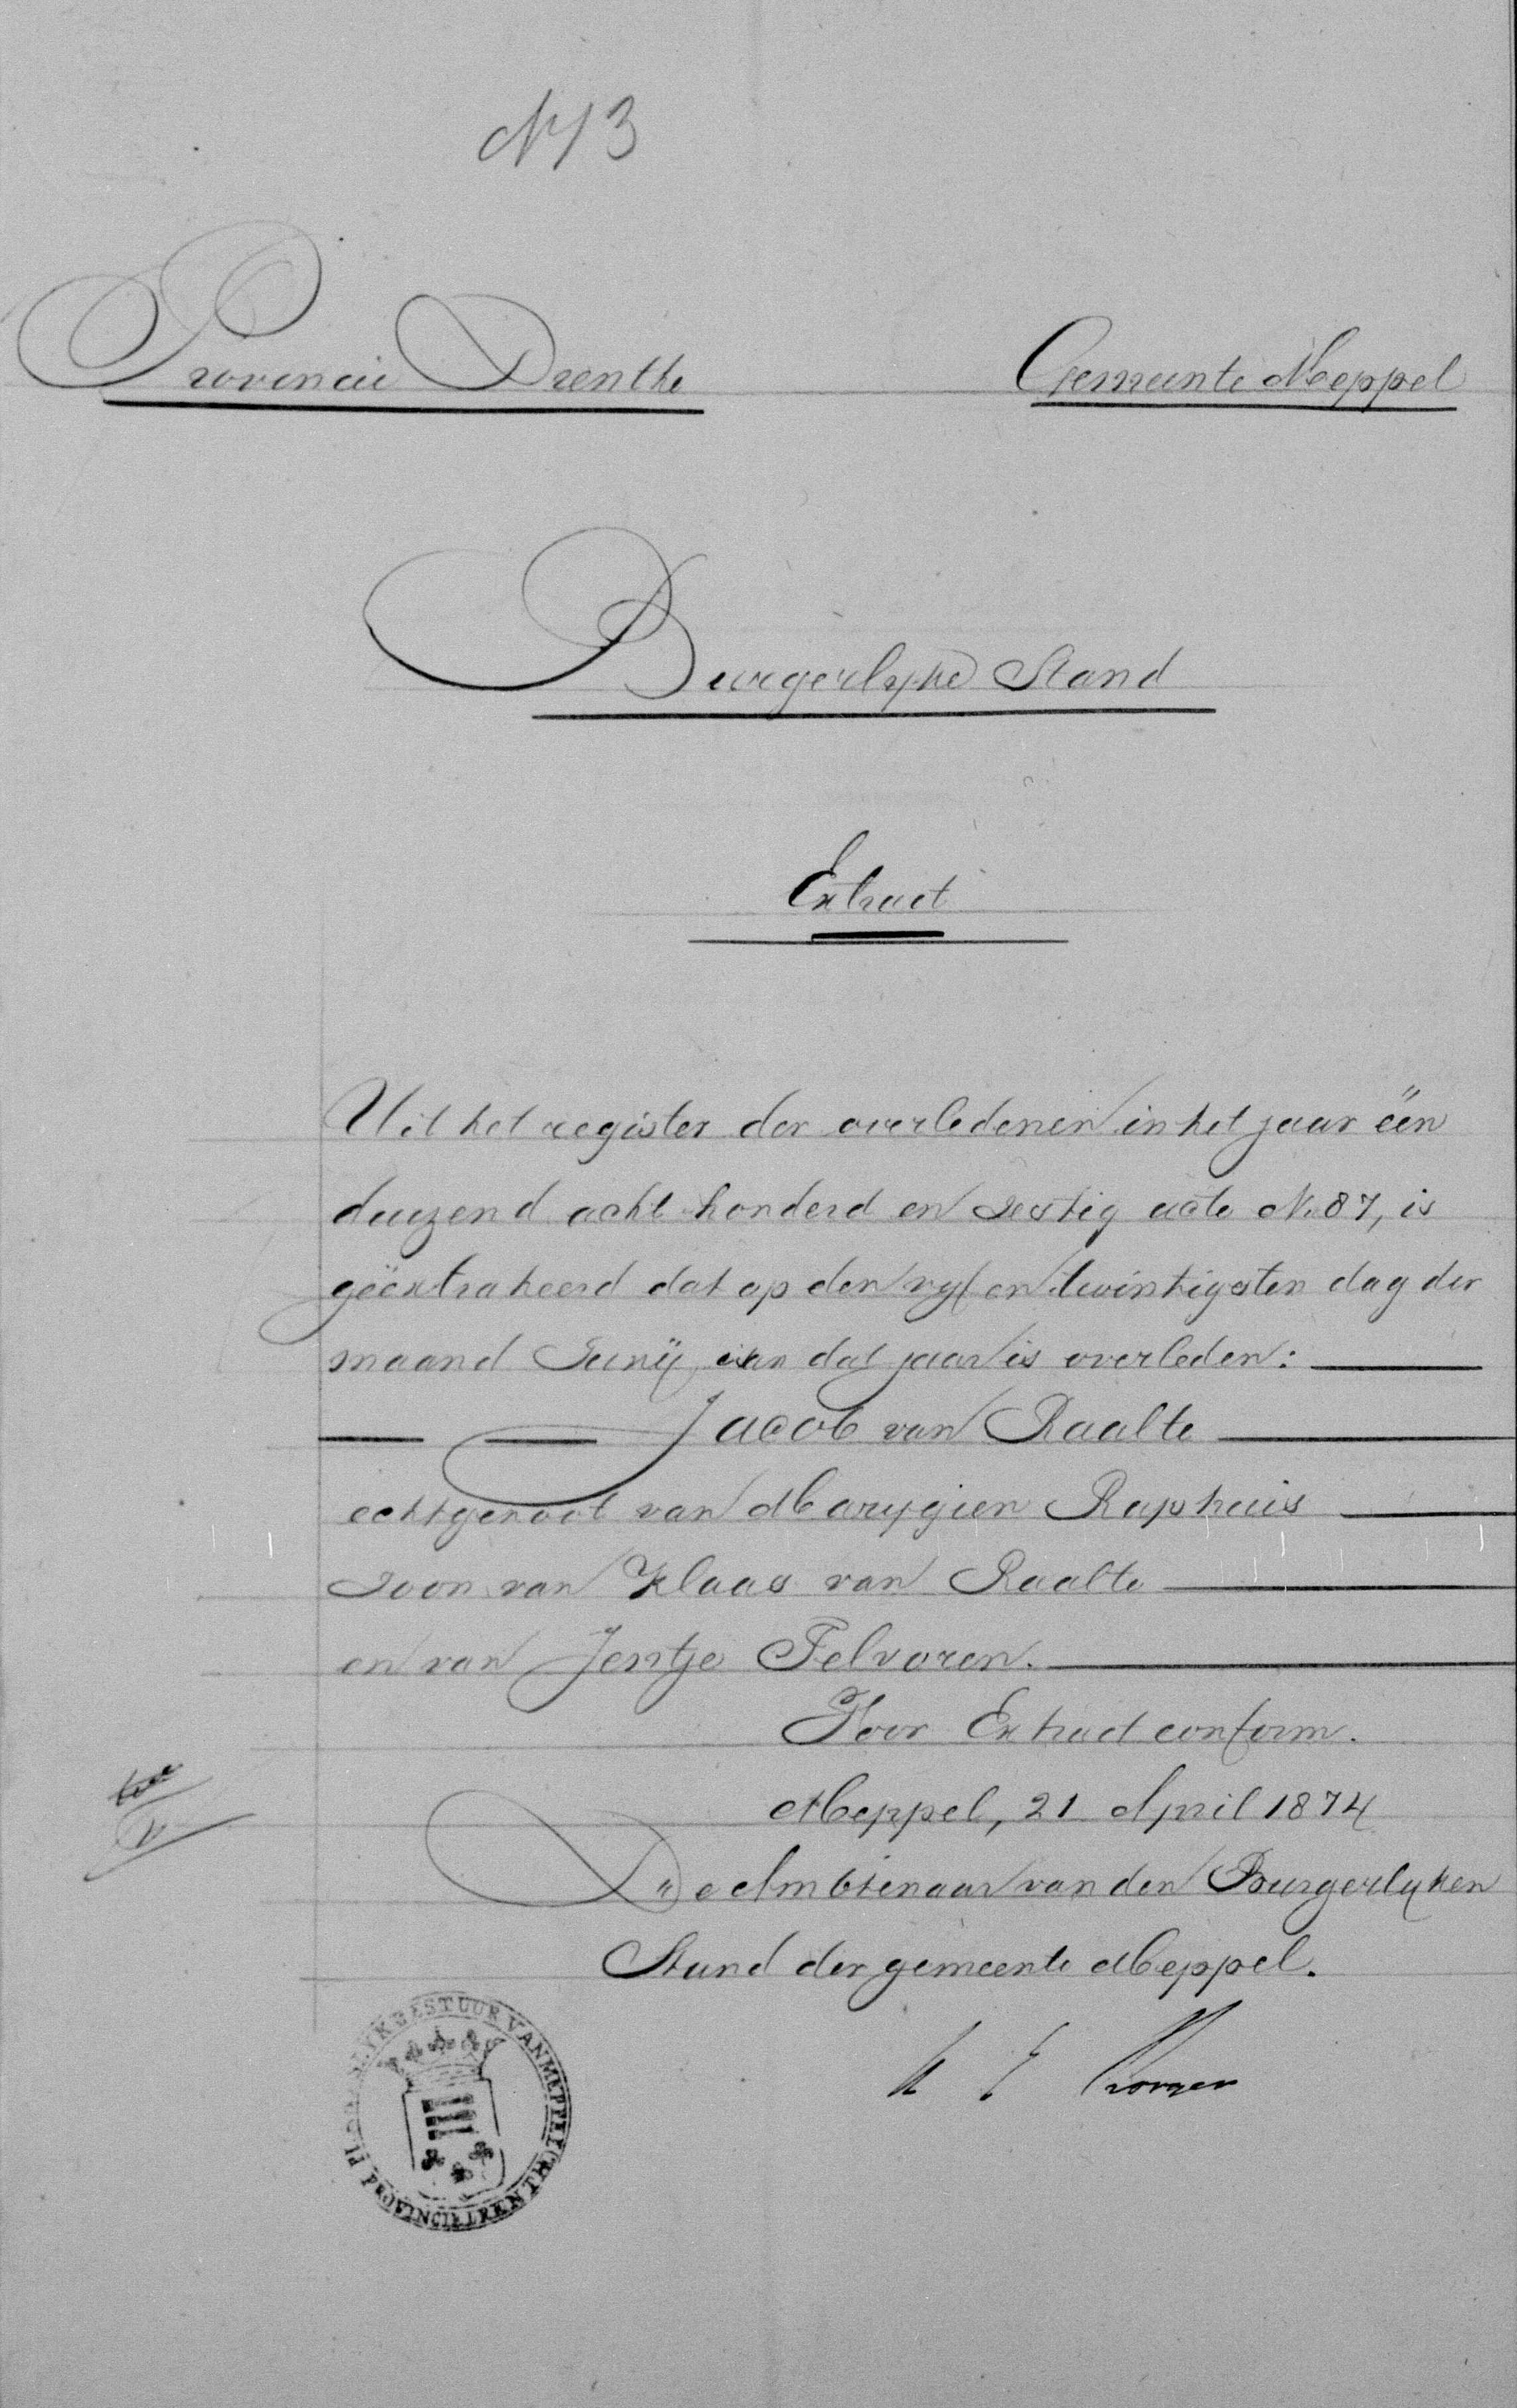 N 13
Provincie Drenthe Gemeente Meppel
Burgerlyke Stand
Extract
Uit het register der overledenen in het jaar één
duizend acht honderd en zestig acte No 87, is
geëxtraheerd dat op den vyf en twintigsten dag der
maand Junij van dat jaar is overleden:
Jacob van Raalte
echtgenoot van Marygien Raphuis
zoon van Klaas van Raalte
en van Jentje Felvoren.
Voor Extract conform.
Meppel, 21 April 1874
De Ambtenaar van den Burgerlyken
Stand der gemeente Meppel.
PLAATSELIJK BESTUUR VAN MEPPEL PROVINCIE DRENTHE